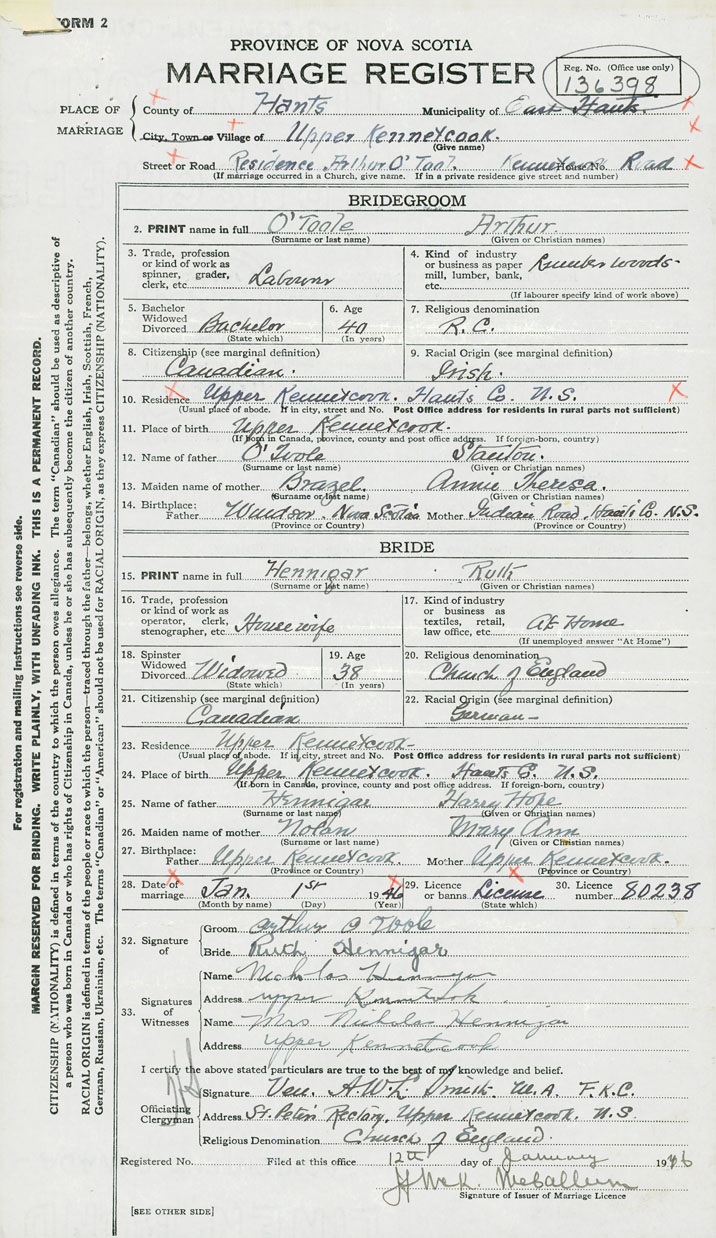 FORM 2
PROVINCE OF NOVA SCOTIA
MARRIAGE REGISTER
Reg. No. (Office use only)
136398
PLACE OF MARRIAGE
County of Hants Municipality of East Hants.
City, Town or Village of Upper Kennetcook.
(Give name)
Street or Road Residence Arthur O'Tool. Kennetcook House No. Road
(If marriage occurred in a Church, give name. If in a private residence give street and number)
BRIDEGROOM
2. PRINT name in full O'Toole Arthur.
(Surname or last name) (Given or Christian names)
3. Trade, profession or kind of work as spinner, grader, clerk, etc. Labourer
4. Kind of industry or business as paper mill, lumber, bank, etc. Lumber woods-
(If labourer specify kind of work above)
5. Bachelor Widowed Divorced Bachelor
(State which)
6. Age 40
(In years)
7. Religious denomination
R.C.
8. Citizenship (see marginal definition)
Canadian.
9. Racial Origin (see marginal definition)
Irish.
10. Residence Upper Kennetcook. Hants Co. N.S.
(Usual place of abode. If in city, street and No. Post Office address for residents in rural parts not sufficient)
11. Place of birth Upper Kennetcook.
(If born in Canada, province, county and post office address. If foreign-born, country)
12. Name of father O'Toole Stanton.
(Surname or last name) (Given or Christian names)
13. Maiden name of mother Brazel. Annie Theresa.
(Surname or last name) (Given or Christian names)
14. Birthplace:
Father Windsor Nova Scotia Mother Indian Road, Hants Co. N.S.
(Province or Country) (Province or Country)
BRIDE
15. PRINT name in full Hennigar Ruth
(Surname or last name) (Given or Christian names)
16. Trade, profession or kind of work as operator, clerk, stenographer, etc. Housewife
17. Kind of industry or business as textiles, retail, law office, etc. At Home
(If unemployed answer "At Home")
18. Spinster Widowed Divorced Widowed
(State which)
19. Age 38
(In years)
20. Religious denomination
Church of England
21. Citizenship (see marginal definition)
Canadian
22. Racial Origin (see marginal definition)
German-
23. Residence Upper Kennetcook-
(Usual place of abode. If in city, street and No. Post Office address for residents in rural parts not sufficient)
24. Place of birth Upper Kennetcook. Hants Co. N.S.
(If born in Canada, province, county and post office address. If foreign-born, country)
25. Name of father Hennigar Harry Hope
(Surname or last name) (Given or Christian names)
26. Maiden name of mother Nolan Mary Ann
(Surname or last name) (Given or Christian names)
27. Birthplace:
Father Upper Kennetcook Mother Upper Kennetcook.
(Province or Country) (Province or Country)
28. Date of marriage Jan. 1st 1946
(Month by name) (Day) (Year)
29. Licence or banns License
(State which)
30. Licence number 80238
32. Signature of
Groom Arthur O Toole
Bride Ruth Hennigar
33. Signatures of Witnesses
Name Nicholas Hennigar
Address upper Kennetcook.
Name Mrs Nicholas Hennigar
Address Upper Kennetcook
I certify the above stated particulars are true to the best of my knowledge and belief.
Officiating Clergyman
Signature Ven. A.W.L. Smith. M.A. F.K.C.
Address St. Peter's Rectory, Upper Kennetcook. N.S.
Religious Denomination Church of England.
Registered No. Filed at this office 12th day of January 1946
McCallum
Signature of Issuer of Marriage Licence
[SEE OTHER SIDE]
For registration and mailing instructions see reverse side.
MARGIN RESERVED FOR BINDING. WRITE PLAINLY, WITH UNFADING INK. THIS IS A PERMANENT RECORD.
CITIZENSHIP (NATIONALITY) is defined in terms of the country to which the person owes allegiance. The term "Canadian" should be used as descriptive of
a person who was born in Canada or who has rights of Citizenship in Canada, unless he or she has subsequently become the citizen of another country.
RACIAL ORIGIN is defined in terms of the people or race to which the person—traced through the father—belongs, whether English, Irish, Scottish, French,
German, Russian, Ukrainian, etc. The terms "Canadian" or "American" should not be used for RACIAL ORIGIN, as they express CITIZENSHIP (NATIONALITY).